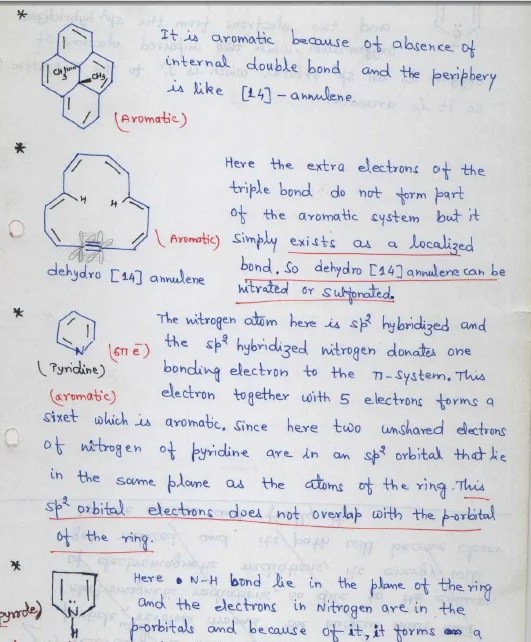 *
It is aromatic because of absence of
internal double bond and the periphery
is like [14]-annulene.
CH3 CH3
(Aromatic)
*
Here the extra electrons of the
triple bond do not form part
of the aromatic system but it
simply exists as a localized
bond. So dehydro [14] annulene can be
nitrated or sulfonated.
H H
(Aromatic)
dehydro [14] annulene
*
The nitrogen atom here is sp² hybridized and
the sp² hybridized nitrogen donates one
bonding electron to the π-system. This
electron together with 5 electrons forms a
N
(6π e̅)
(Pyridine)
(aromatic)
sixet which is aromatic. Since here two unshared electrons
of nitrogen of pyridine are in an sp² orbital that lie
in the same plane as the atoms of the ring. This
sp² orbital electrons does not overlap with the p-orbital
of the ring.
*
Here N-H bond lie in the plane of the ring
and the electrons in Nitrogen are in the
p-orbitals and because of it, it forms a
N
H